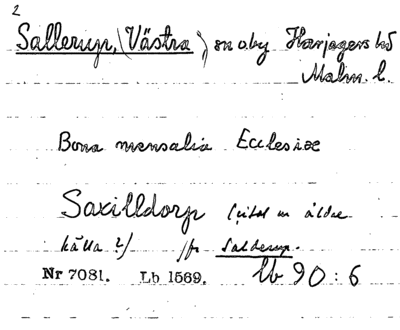 2
Sallerup, (Västra) sn o. by Harjagers hd
Malm. l.
Bona mensalia Ecclesiæ
Saxilldorp (citat ur äldre
källa?) jfr Salderup.
Nr 7081. Lb 1569. lb 90:6